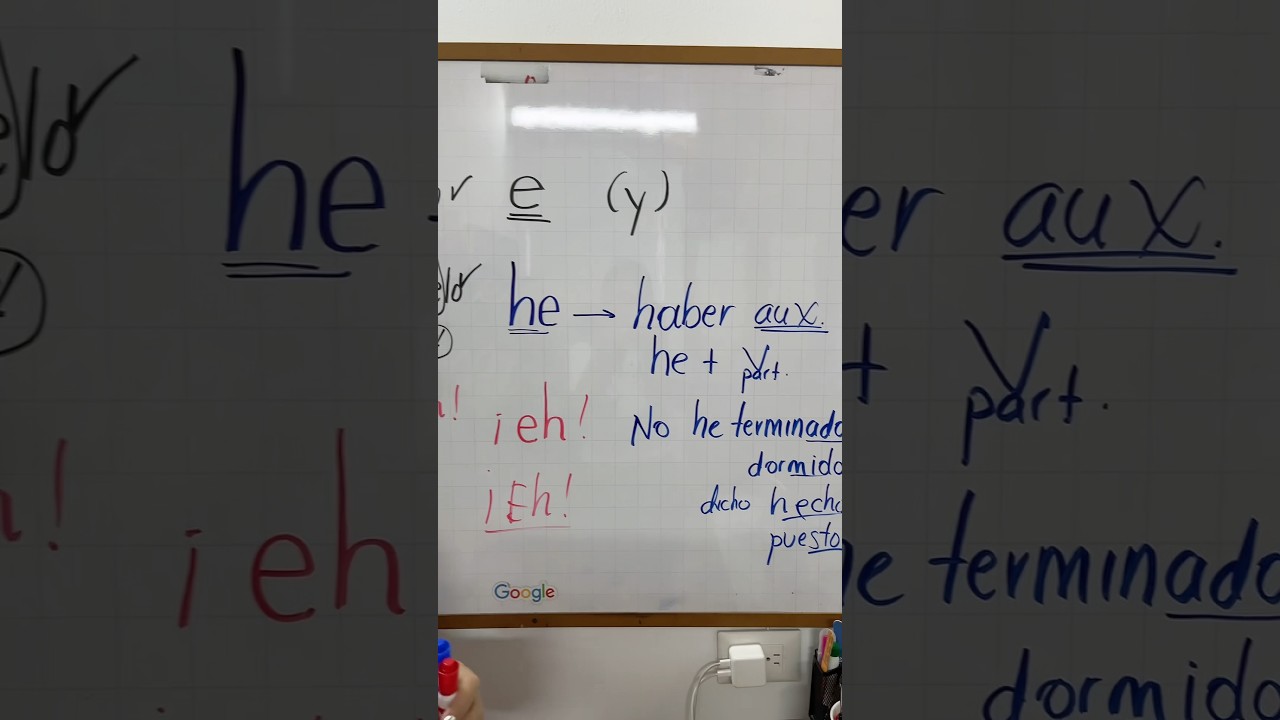 e (y)
he → haber aux.
he + V
part.
¡eh! No he terminado
dormido
¡Eh! dicho hecho
puesto
Google